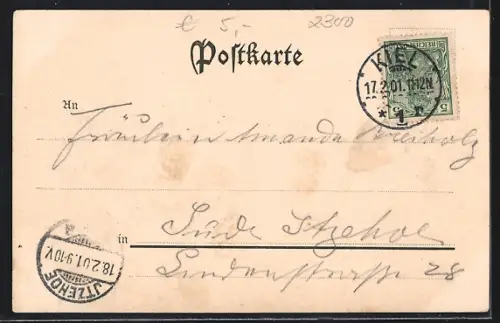 € 5,- 2300
Postkarte
KIEL
17.2.01.11-12N.
* 1 n.
REICHSPOST
5 5
An
Fräulein Amanda
in Süde Itzehoe
Lindenstrasse 28
ITZEHOE
18.2.01.9-10V.